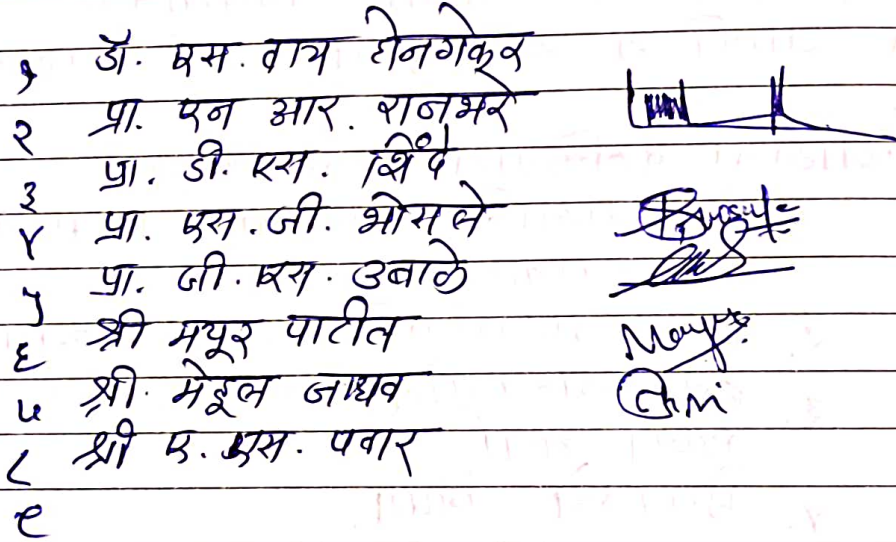 १ डॉ. एस. वाय होनगेकर
२ प्रा. एन आर. रानभरे
३ प्रा. डी. एस. शिंदे
४ प्रा. एस. जी. भोसले Bhosale
५ प्रा. जी. एस. उबाळे
६ श्री मयूर पाटील
७ श्री. मेहूल जाधव
८ श्री ए. एस. पवार
९